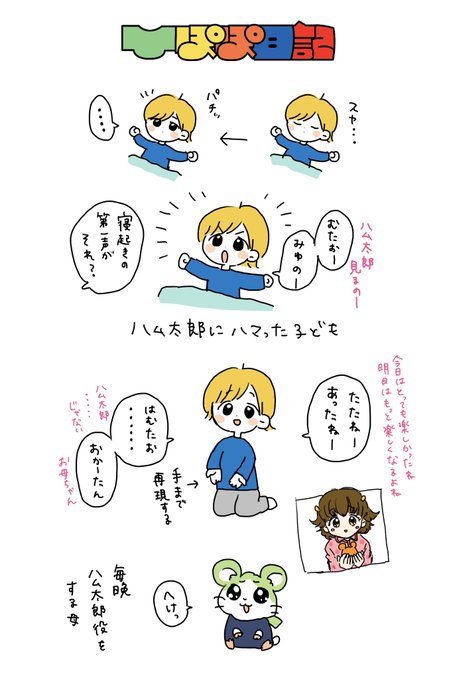 ひぽぽ日記
スヤ…
パチッ
・・・・
むたおー
みゆのー
ハム太郎
見るのー
寝起きの
第一声が
それ？
ハム太郎にハマった子ども
たたねー
あったねー
今日はとっても楽しかったね
明日はもっと楽しくなるよね
手まで
再現する
→
はむたお
・・・・・・
おかーたん
ハム太郎
・・・・・
じゃない
お母ちゃん
へけっ
毎晩
ハム太郎役を
する母